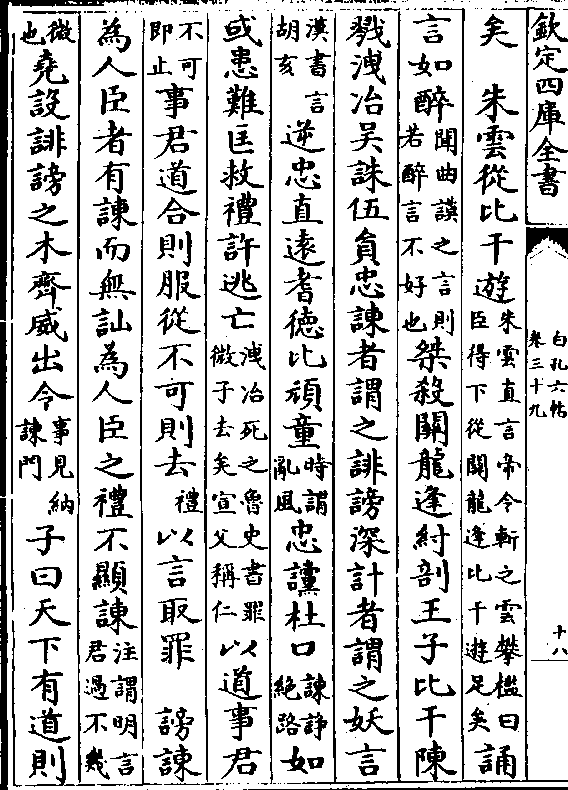 欽定四庫全書
白孔六帖
卷三十九
十八
矣　朱雲從比干遊朱雲直言帝令斬之雲攀檻曰臣得下從關龍逢比干遊足矣誦
言如醉聞曲謨之言則若醉言不好也桀殺關龍逢紂剖王子比干陳
戮洩冶吳誅伍員忠諫者謂之誹謗深計者謂之妖言
漢書言胡亥逆忠直遠耆德比頑童時謂亂風忠讜杜口諫諍絶路如
或患難匡救禮許逃亡洩冶死之魯史書罪微子去矣宣父稱仁以道事君
不可即止事君道合則服從不可則去禮以言取罪　謗諫
為人臣者有諫而無訕為人臣之禮不顯諫注謂明言君過不幾
微也堯設誹謗之木齊威出令事見納諫門子曰天下有道則